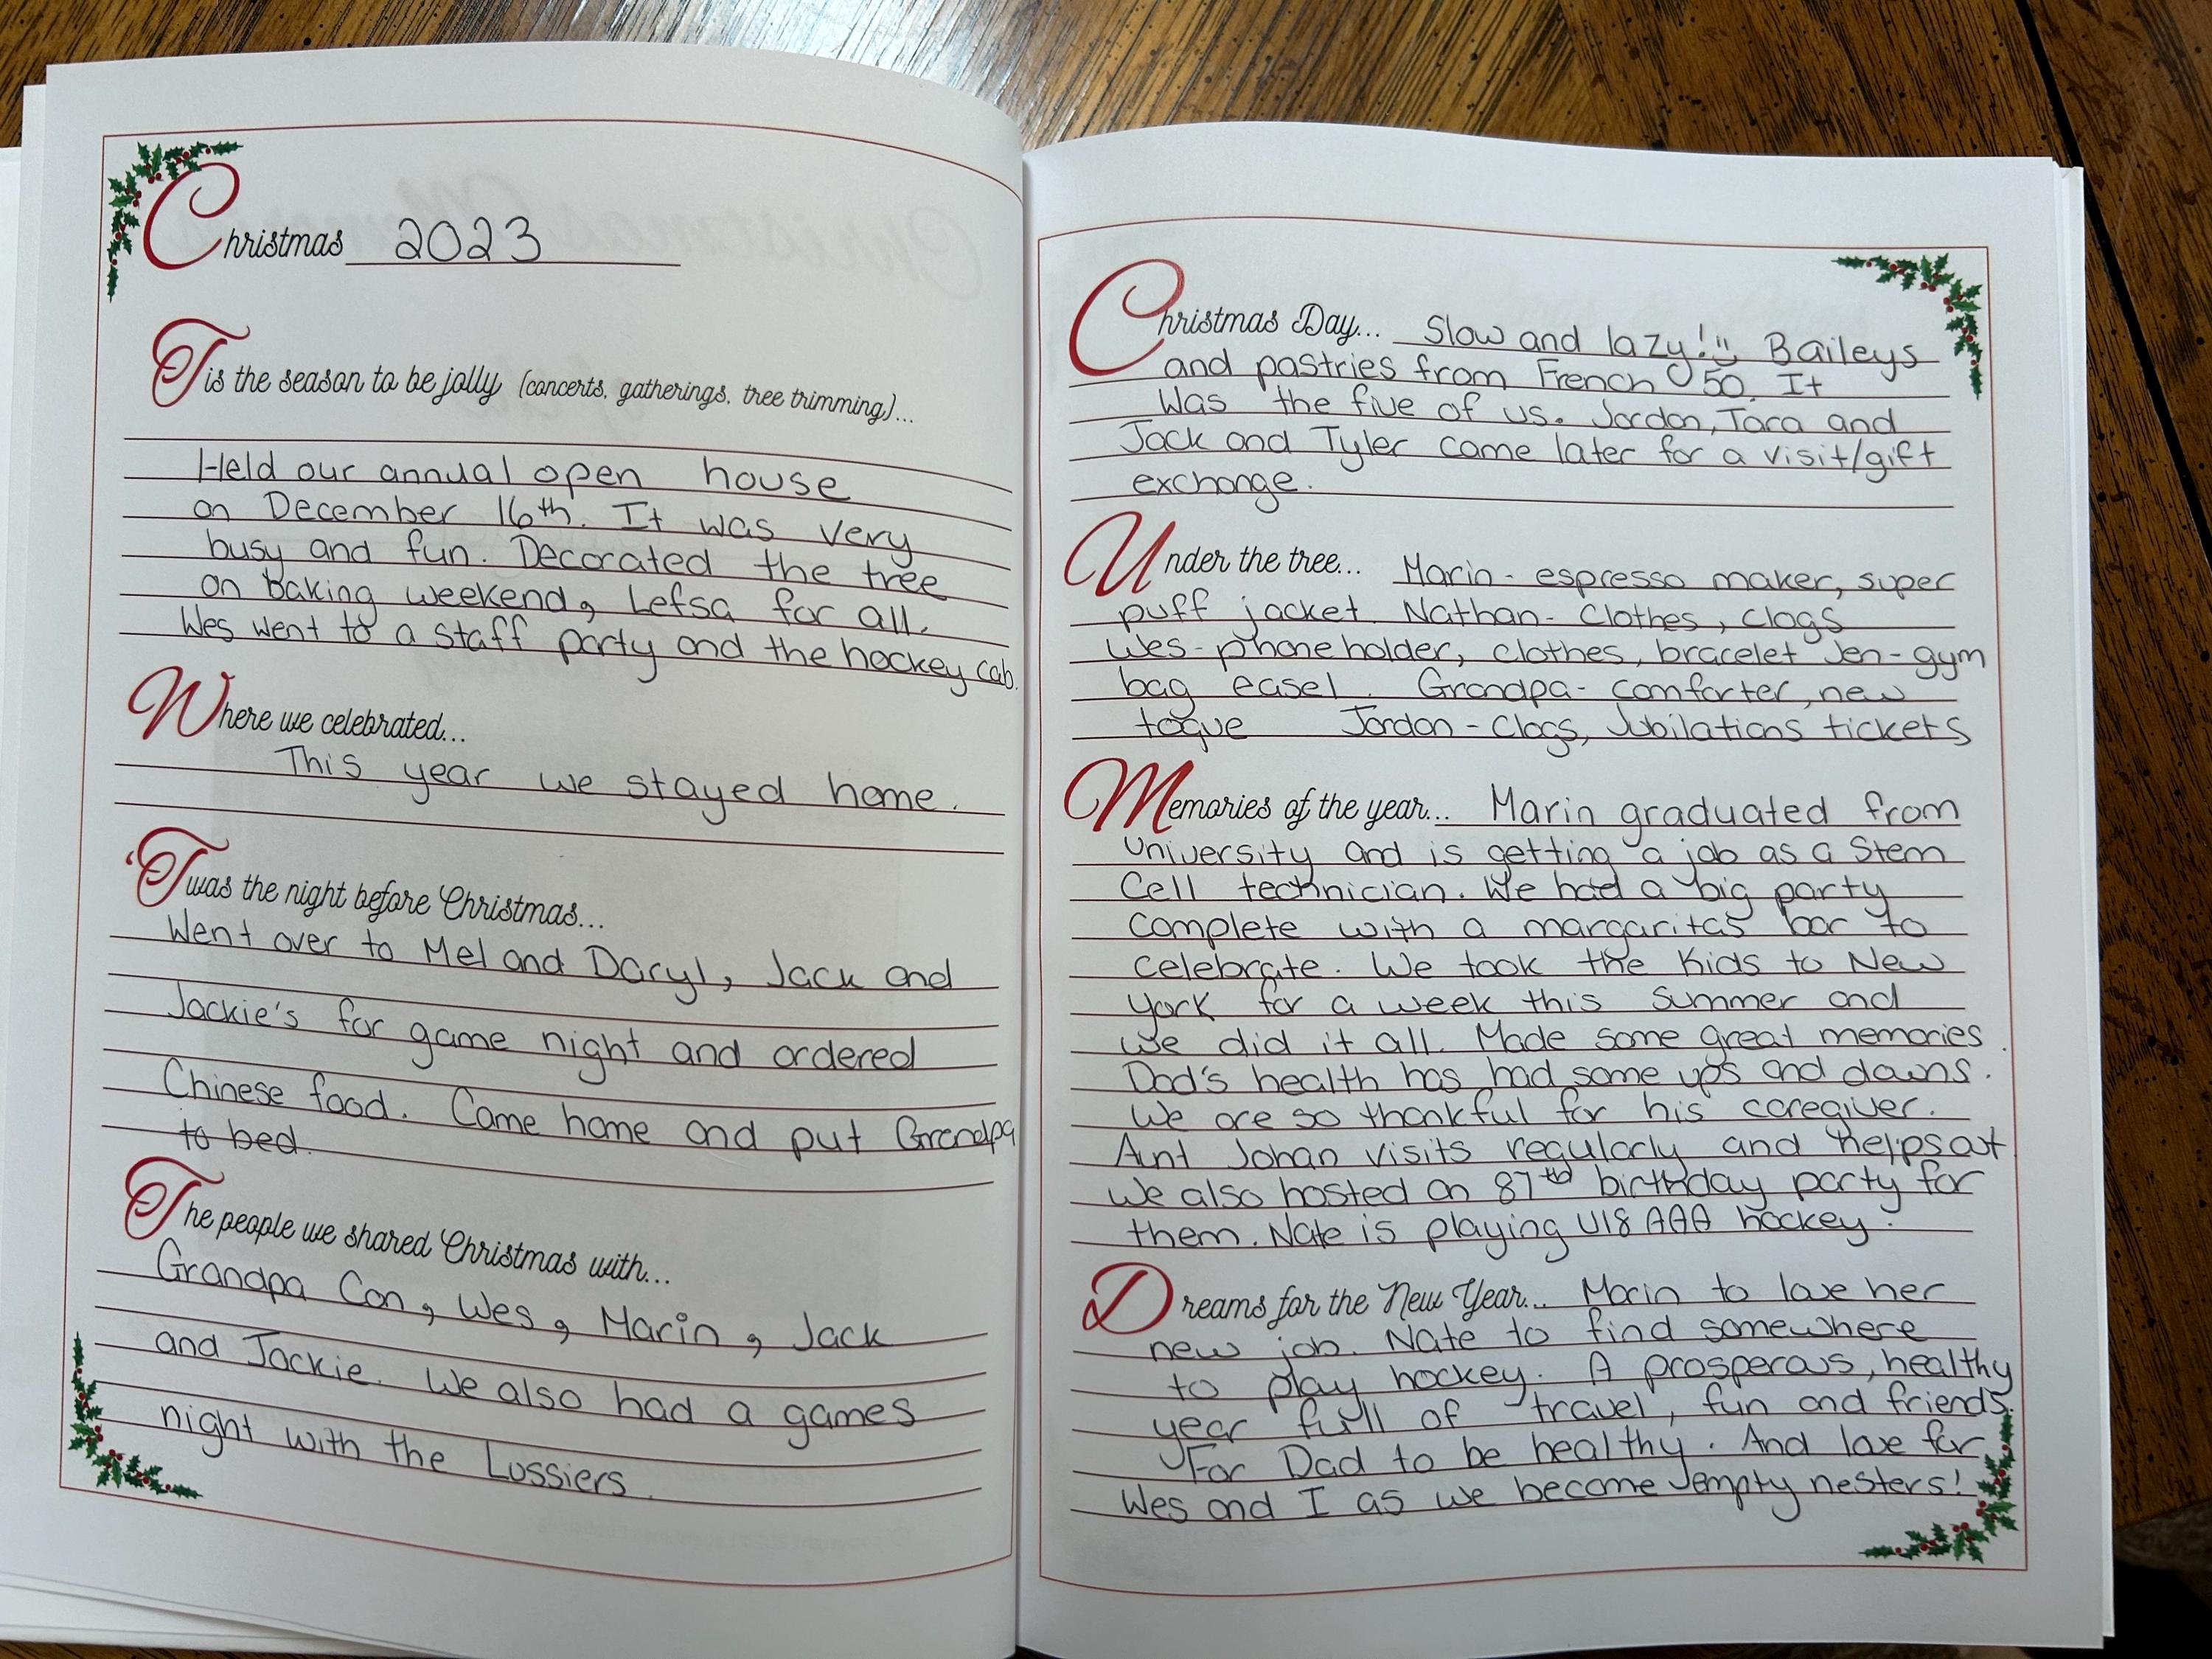 Christmas 2023
'Tis the season to be jolly (concerts, gatherings, tree trimming)...
Held our annual open house
on December 16th. It was very
busy and fun. Decorated the tree
on baking weekend, Lefsa for all.
Wes went to a staff party and the hockey cab.
Where we celebrated...
This year we stayed home.
'Twas the night before Christmas...
Went over to Mel and Daryl, Jack and
Jackie's for game night and ordered
Chinese food. Came home and put Grandpa
to bed.
The people we shared Christmas with...
Grandpa Con, Wes, Marin, Jack
and Jackie. We also had a games
night with the Lussiers.
Christmas Day... Slow and lazy! Baileys
and pastries from French 50. It
was the five of us. Jordon, Tara and
Jack and Tyler came later for a visit/gift
exchange.
Under the tree... Marin - espresso maker, super
puff jacket. Nathan - Clothes, clogs
Wes - phone holder, clothes, bracelet Jen - gym
bag easel. Grandpa - comforter, new
toque Jordon - Clogs, Jubilations tickets
Memories of the year... Marin graduated from
University and is getting a job as a Stem
Cell technician. We had a big party
complete with a margaritas bar to
celebrate. We took the kids to New
York for a week this summer and
we did it all. Made some great memories.
Dad's health has had some ups and downs.
We are so thankful for his caregiver.
Aunt Johan visits regularly and helps out
We also hosted an 87th birthday party for
them. Nate is playing U18 AAA hockey.
Dreams for the New Year... Marin to love her
new job. Nate to find somewhere
to play hockey. A prosperous, healthy
year full of travel, fun and friends.
For Dad to be healthy. And love for
Wes and I as we become empty nesters!